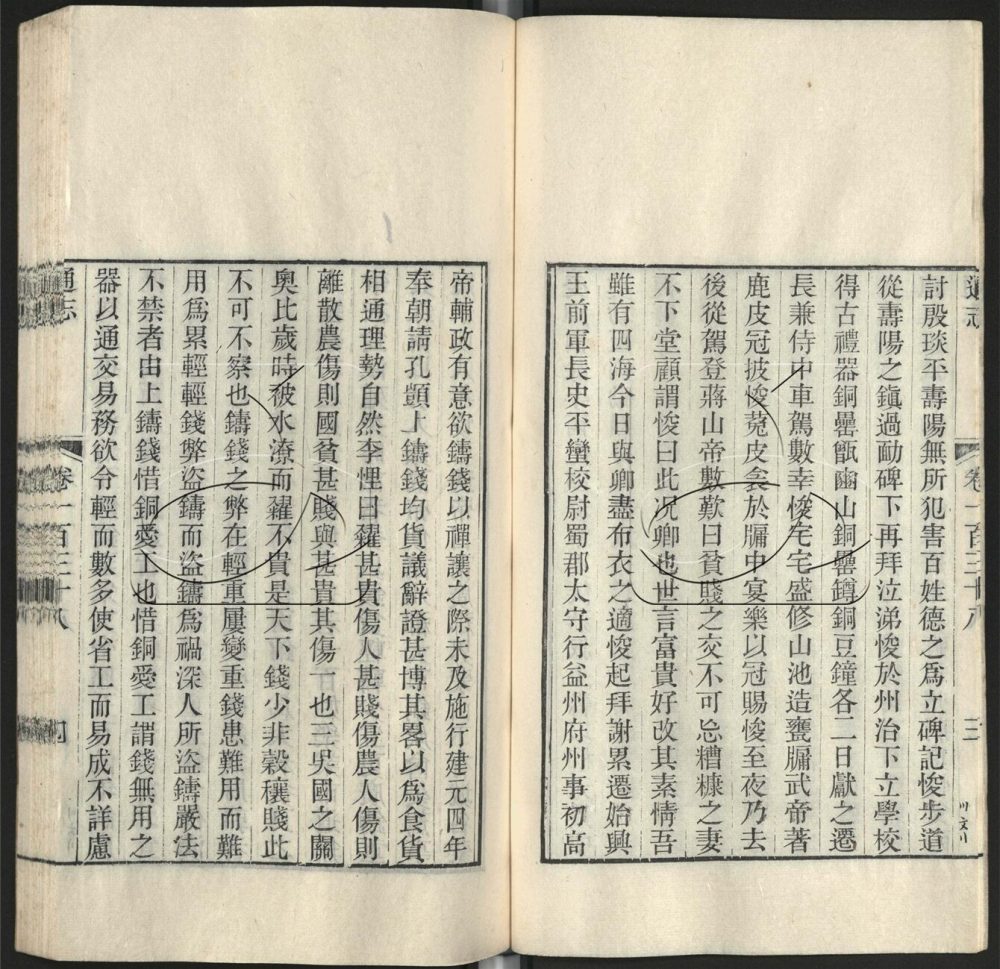 通志
卷一百三十八
三
討殷琰平壽陽無所犯害百姓德之爲立碑記悛步道
從壽陽之鎮過勔碑下再拜泣涕悛於州治下立學校
得古禮器銅罍甑豳山銅罍鐏銅豆鐘各二日獻之遷
長兼侍中車駕數幸悛宅宅盛修山池造甕牖武帝著
鹿皮冠披悛菟皮衾於牖中宴樂以冠賜悛至夜乃去
後從駕登蔣山帝數歎曰貧賤之交不可忘糟糠之妻
不下堂顧謂悛曰此况卿也世言富貴好改其素情吾
雖有四海今日與卿盡布衣之適悛起拜謝累遷始興
王前軍長史平蠻校尉蜀郡太守行益州府州事初高
帝輔政有意欲鑄錢以禪讓之際未及施行建元四年
奉朝請孔顗上鑄錢均貨議辭證甚博其畧以爲食貨
相通理勢自然李悝曰糴甚貴傷人甚賤傷農人傷則
離散農傷則國貧甚賤與甚貴其傷一也三吳國之關
奧比歲時被水潦而糴不貴是天下錢少非穀穰賤此
不可不察也鑄錢之弊在輕重屢變重錢患難用而難
用爲累輕輕錢弊盜鑄而盜鑄爲禍深人所盜鑄嚴法
不禁者由上鑄錢惜銅愛工也惜銅愛工謂錢無用之
器以通交易務欲令輕而數多使省工而易成不詳慮
通志
卷一百三十八